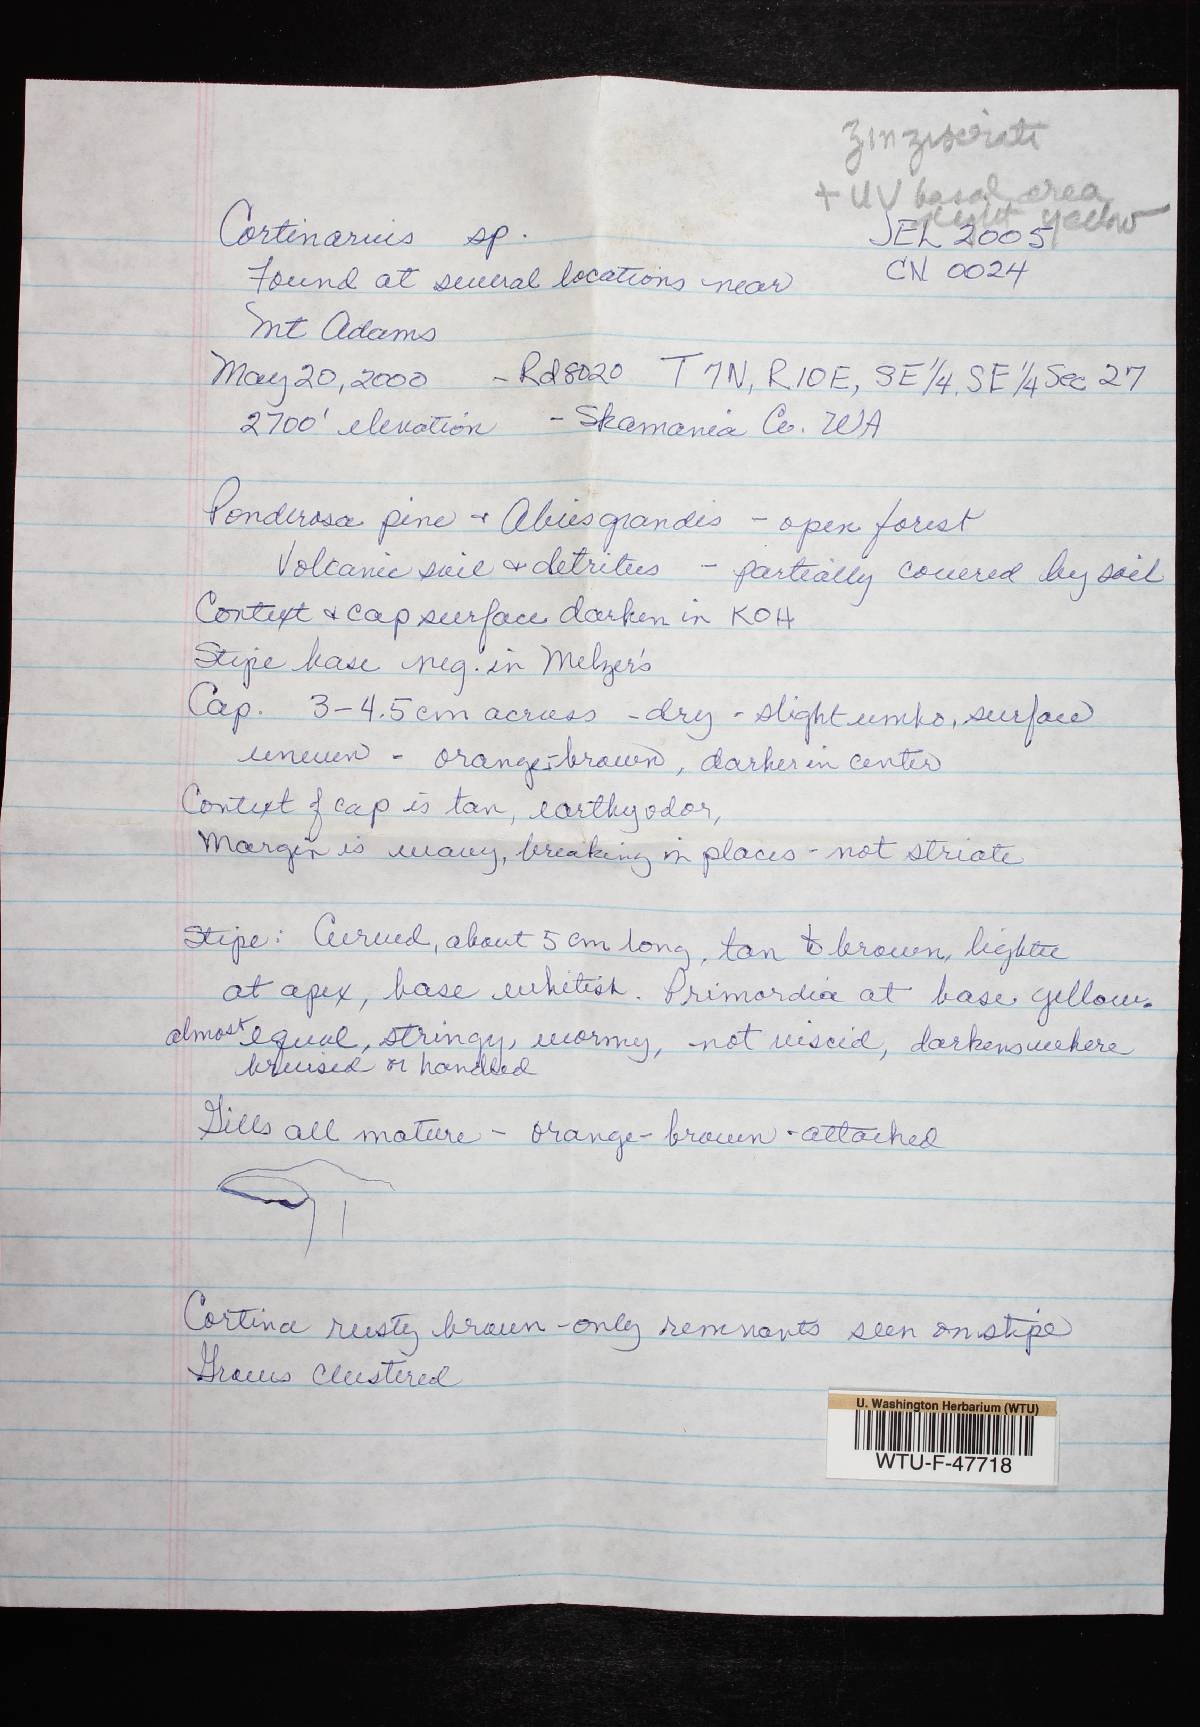 + UV basal area
light yellow
Cortinarius sp.
JEL 2005
Found at several locations near
CN 0024
Mt Adams
May 20, 2000 - Rd 8020 T 7N, R10E, SE 1/4, SE 1/4 Sec 27
2700' elevation - Skamania Co. WA
Ponderosa pine + Abies grandis - open forest
Volcanic soil + detritus - partially covered by soil
Context + cap surface darken in KOH
Stipe base neg. in Melzer's
Cap. 3-4.5 cm across - dry - slight umbo, surface
uneven - orange-brown, darker in center
Context of cap is tan, earthy odor,
Margin is wavy, breaking in places - not striate
Stipe: Curved, about 5 cm long, tan to brown, lighter
at apex, base whitish. Primordia at base yellow.
almost equal, stringy, wormy, not viscid, darkens where
bruised or handled
Gills all mature - orange-brown - attached
Cortina rusty brown - only remnants seen on stipe
Grows clustered
U. Washington Herbarium (WTU)
WTU-F-47718